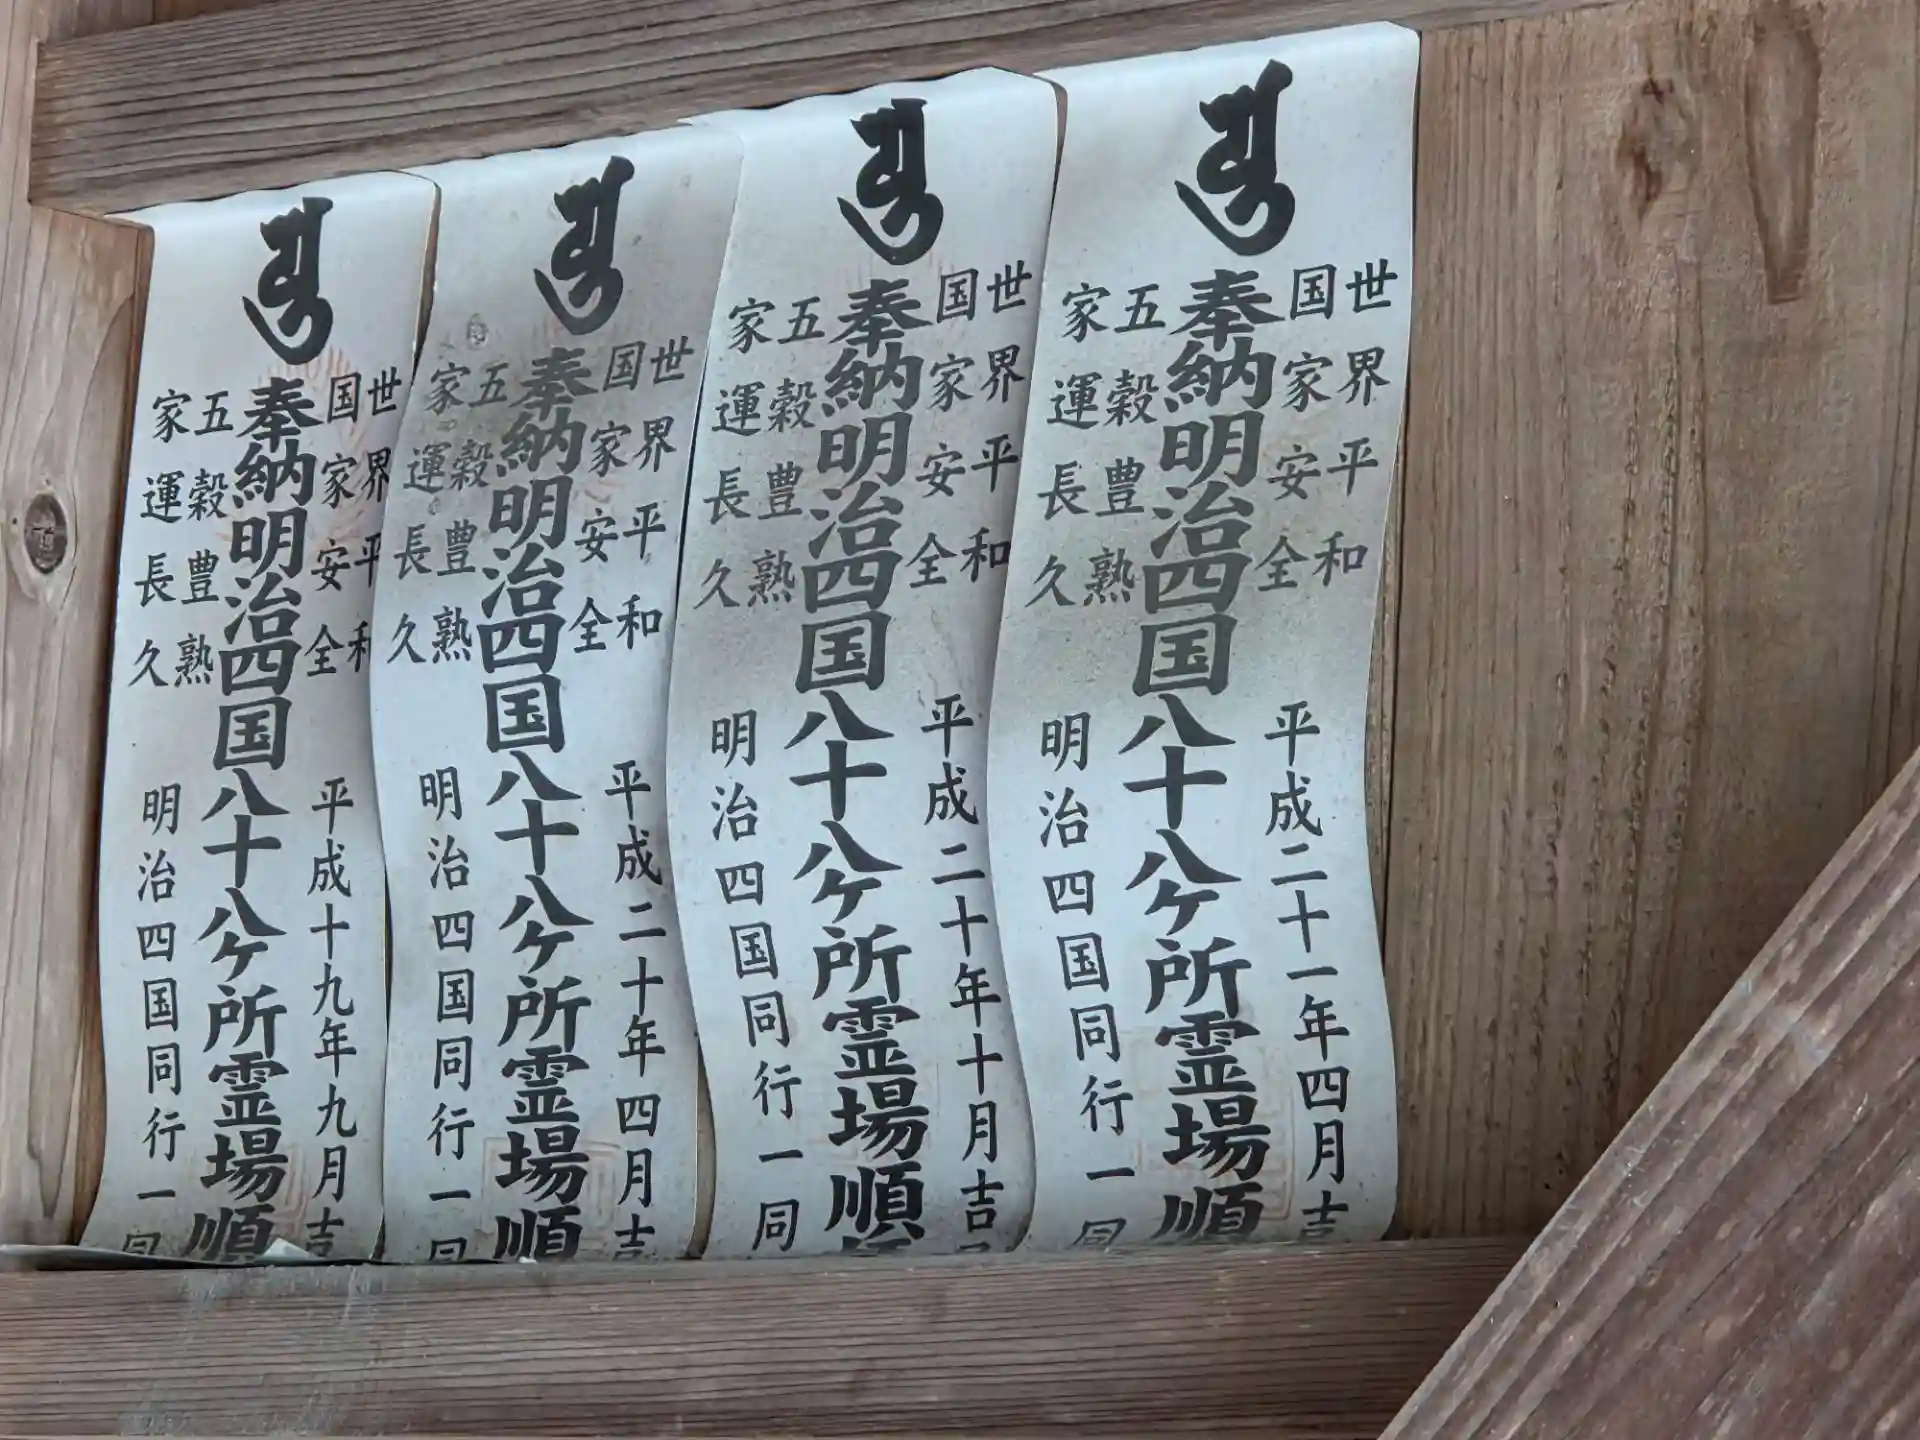 世界平和
国家安全
平成二十一年四月吉
奉納明治四国八十八ヶ所霊場順
五穀豊熟
家運長久
明治四国同行一同
世界平和
国家安全
平成二十年十月吉
奉納明治四国八十八ヶ所霊場順
五穀豊熟
家運長久
明治四国同行一同
世界平和
国家安全
平成二十年四月吉
奉納明治四国八十八ヶ所霊場順
五穀豊熟
家運長久
明治四国同行一同
世界平和
国家安全
平成十九年九月吉
奉納明治四国八十八ヶ所霊場順
五穀豊熟
家運長久
明治四国同行一同